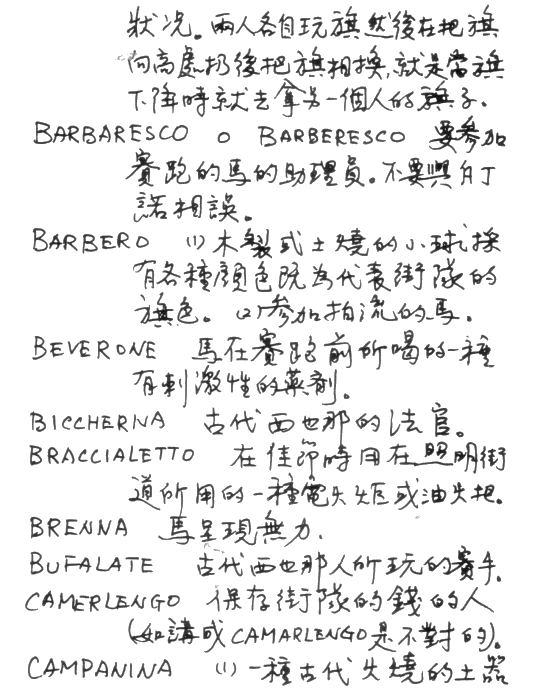 狀況。兩人各自玩旗然後在把旗
向高處扔後把旗相換,就是當旗
下降時就去拿另一個人的旗子.
BARBARESCO O BARBERESCO 要參加
賽跑的馬的助理員。不要與月丁
諾相誤。
BARBERO (1) 木製或土燒的小球,採
有各種顏色既為代表街隊的
旗色。(2)參加拍流的馬。
BEVERONE 馬在賽跑前所喝的一種
有刺激性的藥劑。
BICCHERNA 古代西也那的法官。
BRACCIALETTO 在佳節時用在照明街
道所用的一種電火炬或油火把.
BRENNA 馬呈現無力.
BUFALATE 古代西也那人所玩的賽手.
CAMERLENGO 保存街隊的錢的人
(如講成CAMARLENGO是不對的).
CAMPANINA (1) 一種古代火燒的土器